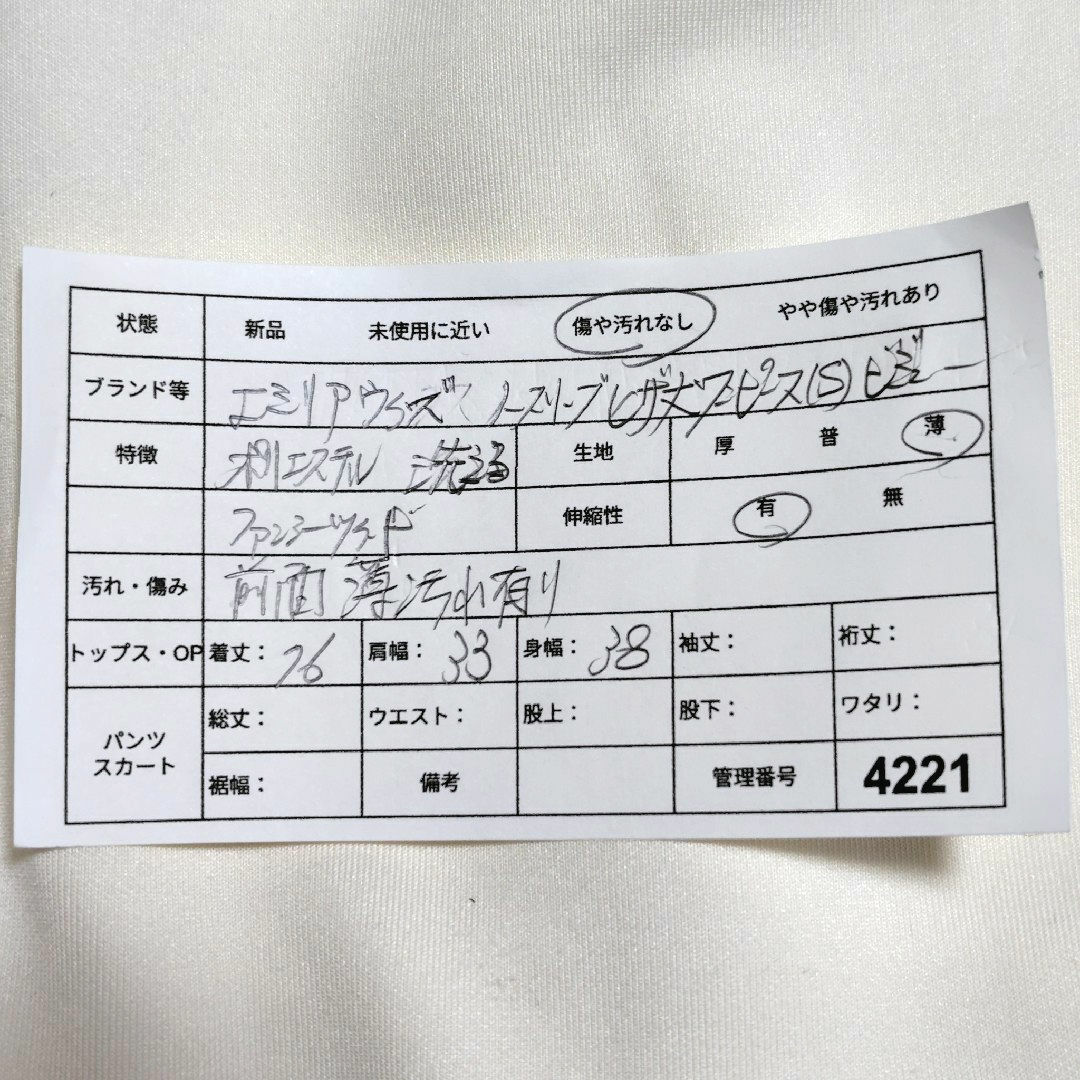 状態 新品 未使用に近い 傷や汚れなし やや傷や汚れあり
ブランド等 エミリアウィズ ノースリーブ ワンピース(S)
特徴 ポリエステル 洗える 生地 厚 普 薄
ファンシーツイード 伸縮性 有 無
汚れ・傷み 前面 薄汚れ有り
トップス・OP 着丈: 76 肩幅: 33 身幅: 38 袖丈: 裄丈:
パンツ スカート 総丈: ウエスト: 股上: 股下: ワタリ:
裾幅: 備考 管理番号 4221